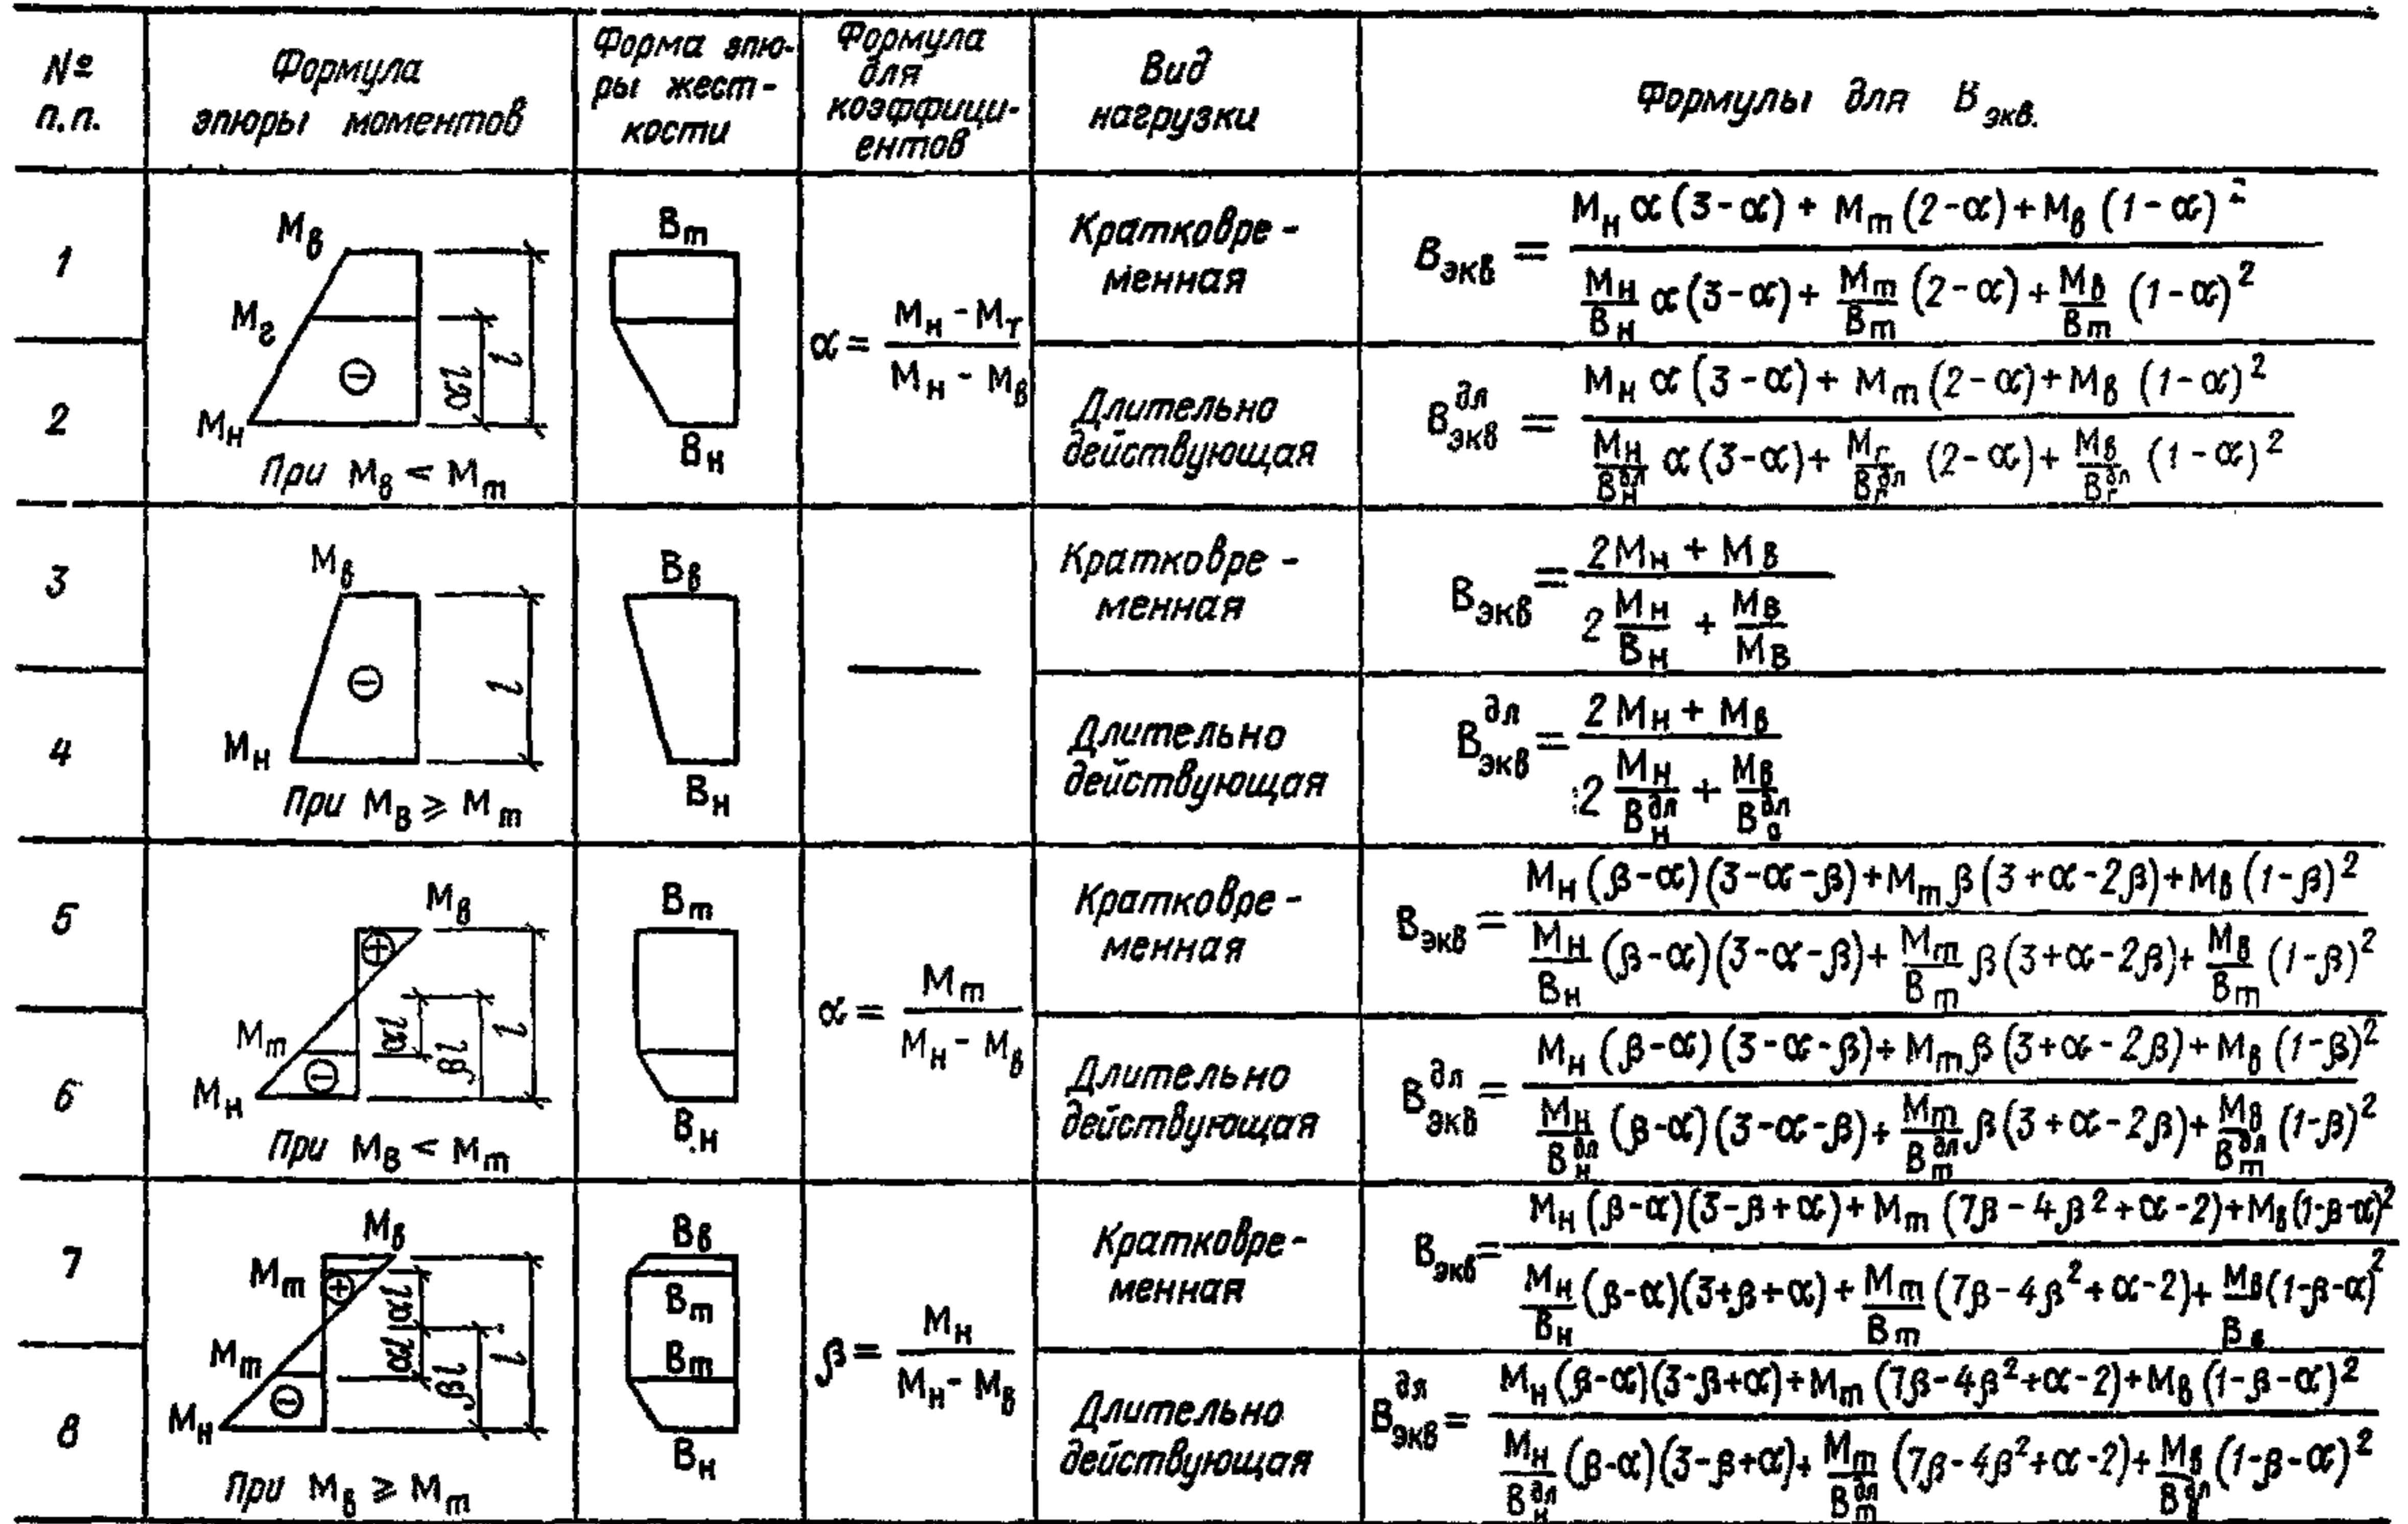 № п.п.
Формула эпюры моментов
Форма эпю-
ры жест-
кости
Формула
для
коэффици-
ентов
Вид
нагрузки
Формулы для B экв.
1
M_в
M_г
M_н
αl
l
⊖
При M_в < M_т
B_т
B_н
α = (M_н - M_т) / (M_н - M_в)
Кратковре-
менная
B_экв = (M_н α(3-α) + M_т(2-α) + M_в(1-α)²) / (M_н/B_н α(3-α) + M_т/B_т (2-α) + M_в/B_т (1-α)²)
2
Длительно
действующая
B_экв^дл = (M_н α(3-α) + M_т(2-α) + M_в(1-α)²) / (M_н/B_н^дл α(3-α) + M_г/B_г^дл (2-α) + M_в/B_г^дл (1-α)²)
3
M_в
M_н
l
⊖
При M_в ⩾ M_т
B_в
B_н
—
Кратковре-
менная
B_экв = (2M_н + M_в) / (2 M_н/B_н + M_в/M_в)
4
Длительно
действующая
B_экв^дл = (2M_н + M_в) / (2 M_н/B_н^дл + M_в/B^дл)
5
M_в
⊕
M_т
M_н
⊖
αl
βl
l
При M_в < M_т
B_т
B_н
α = M_т / (M_н - M_в)
Кратковре-
менная
B_экв = (M_н(β-α)(3-α-β) + M_т β(3+α-2β) + M_в(1-β)²) / (M_н/B_н (β-α)(3-α-β) + M_т/B_т β(3+α-2β) + M_в/B_т (1-β)²)
6
Длительно
действующая
B_экв^дл = (M_н(β-α)(3-α-β) + M_т β(3+α-2β) + M_в(1-β)²) / (M_н/B_н^дл (β-α)(3-α-β) + M_т/B_т^дл β(3+α-2β) + M_в/B_т^дл (1-β)²)
7
M_в
M_т
⊕
M_т
M_н
⊖
αl
αl
βl
l
При M_в ⩾ M_т
B_в
B_т
B_т
B_н
β = M_н / (M_н - M_в)
Кратковре-
менная
B_экв = (M_н(β-α)(3-β+α) + M_т(7β-4β²+α-2) + M_в(1-β-α)²) / (M_н/B_н (β-α)(3+β+α) + M_т/B_т (7β-4β²+α-2) + M_в/B_в (1-β-α)²)
8
Длительно
действующая
B_экв^дл = (M_н(β-α)(3-β+α) + M_т(7β-4β²+α-2) + M_в(1-β-α)²) / (M_н/B_н^дл (β-α)(3-β+α) + M_т/B_т^дл (7β-4β²+α-2) + M_в/B_в^дл (1-β-α)²)